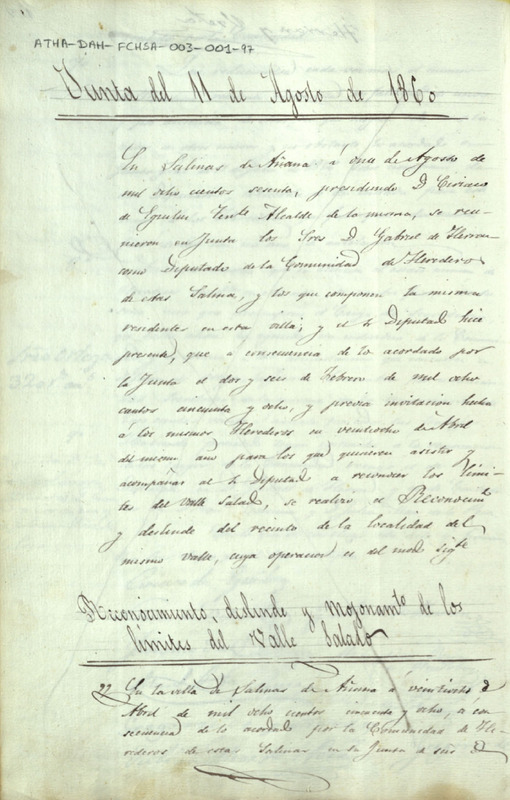 ATHA-DAH-FCHSA-003-001-97
Junta del 11 de Agosto de 1860
En Salinas de Añana á once de Agosto de
mil ocho cientos sesenta, presidiendo D Ciriaco
de Eguiluz Tente Alcalde de la misma, se reu-
nieron en Junta los Sres D. Gabriel de Herran
como Diputado de la Comunidad de Herederos
de estas Salinas, y los que componen la misma
residentes en esta villa; y el Sr Diputado hizo
presente, que a consecuencia de lo acordado por
la Junta el dos y seis de Febrero de mil ocho
cientos cincuenta y ocho, y previa invitacion hecha
á los mismos Herederos en veintiocho de Abril
del mismo año para los que quisieren asistir y
acompañar al Sr Diputado a reconocer los limi-
tes del Valle Salado, se realizó el Reconocimto
y deslinde del recinto de la localidad del
mismo Valle, cuya operacion es del modo sigte
Reconocimiento, deslinde y Mojonamto de los
límites del Valle Salado
En la villa de Salinas de Añana á veintiocho de
Abril de mil ocho cientos cincuenta y ocho, a con
secuencia de lo acordado por la Comunidad de He-
rederos de estas Salinas en la Junta de